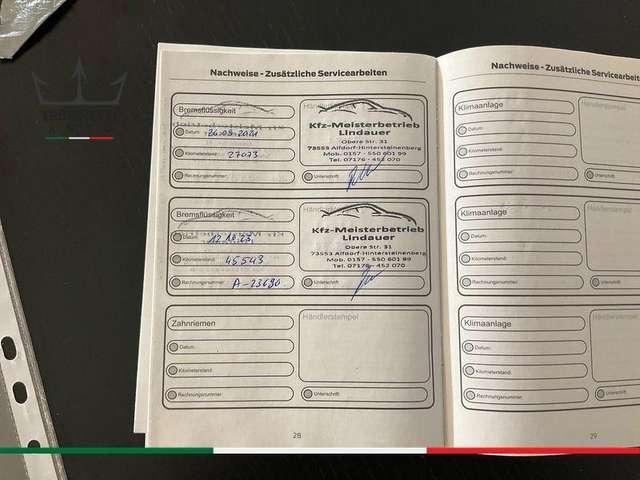 Nachweise - Zusätzliche Servicearbeiten
Bremsflüssigkeit
Datum: 26.08.2021
Kilometerstand: 27073
Rechnungsnummer:
Händlerstempel
Kfz-Meisterbetrieb
Lindauer
Obere Str. 31
73553 Alfdorf-Hintersteinenberg
Mob. 0157 - 550 601 99
Tel. 07176 - 452 070
Unterschrift:
Bremsflüssigkeit
Datum:
Kilometerstand: 45543
Rechnungsnummer: A-23680
Kfz-Meisterbetrieb
Lindauer
Obere Str. 31
73553 Alfdorf-Hintersteinenberg
Mob. 0157 - 550 601 99
Tel. 07176 - 452 070
Unterschrift:
Zahnriemen
Händlerstempel
Datum:
Kilometerstand:
Rechnungsnummer:
Unterschrift:
28
Nachweise - Zusätzliche Servicearbei
Klimaanlage
Händlerstempel
Datum:
Kilometerstand:
Rechnungsnummer:
Unterschrift:
Klimaanlage
Händlerstempel
Datum:
Kilometerstand:
Rechnungsnummer:
Unterschrift:
Klimaanlage
Händlerstempel
Datum:
Kilometerstand:
Rechnungsnummer:
Unterschrift:
29